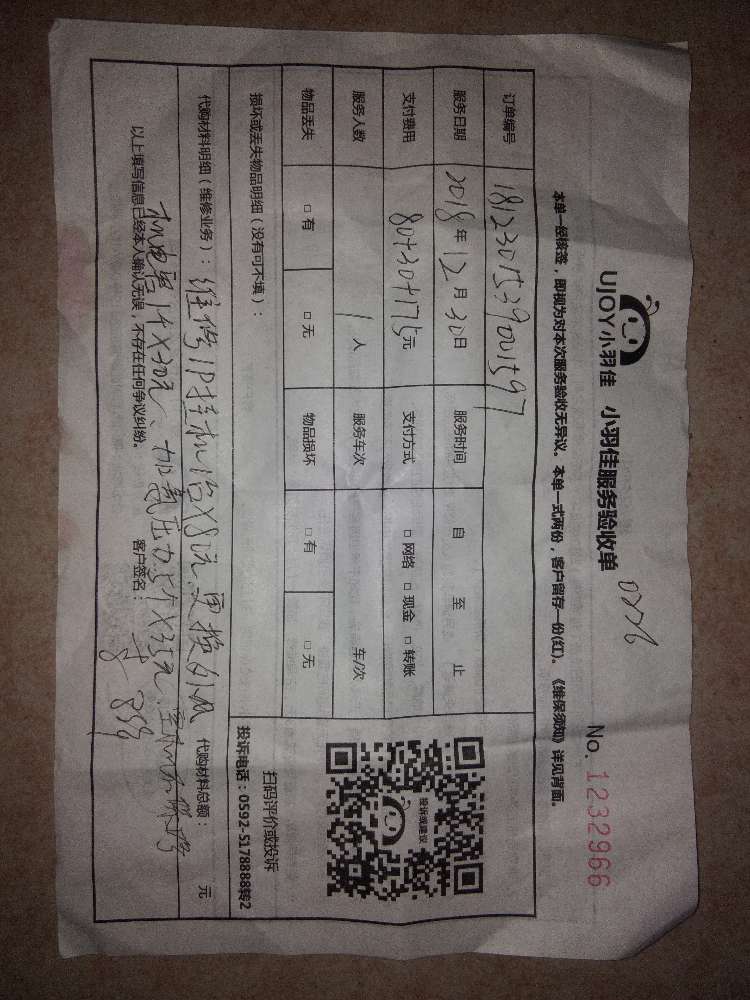 UJOY小羽佳 小羽佳服务验收单
No. 1232966
本单一经核签，即视为对本次服务验收无异议。本单一式两份，客户留存一份(红)。《维保须知》详见背面。
订单编号
服务日期 2018年12月30日 服务时间 自 至 止
支付费用 80+30+175元 支付方式 □ 网络 □ 现金 □ 转账
服务人数 1 人 服务车次 车/次
物品丢失 □ 有 □ 无 物品损坏 □ 有 □ 无
损坏或丢失物品明细（没有可不填）：
投诉或建议
扫码评价或投诉
投诉电话：0592-5178888转2
代购材料明细（维修业务）： 维修1P挂机 更换外风 代购材料总额： 元
机电容1个×30元、加氟压力5个×35元、
以上填写信息已经本人确认无误，不存在任何争议纠纷。 客户签名：